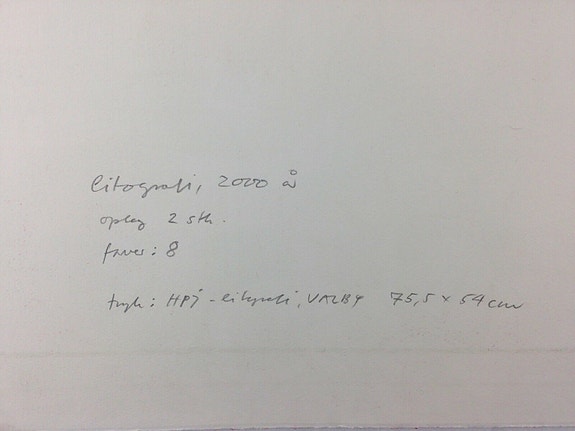 litografi, 2000 år
oplag 2 stk.
farver: 8
tryk: HPJ-litografi, VALBY 75,5 x 54 cm